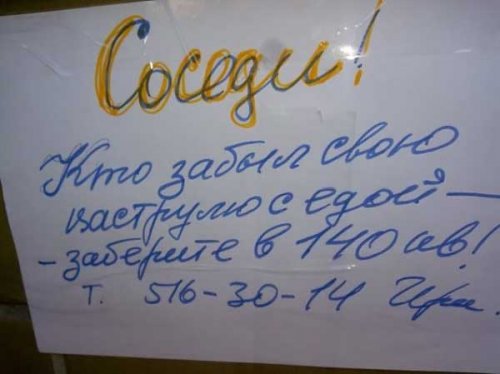 Соседи!
Кто забыл свою
каструлю с едой —
- заберите в 140 кв!
т. 516-30-14